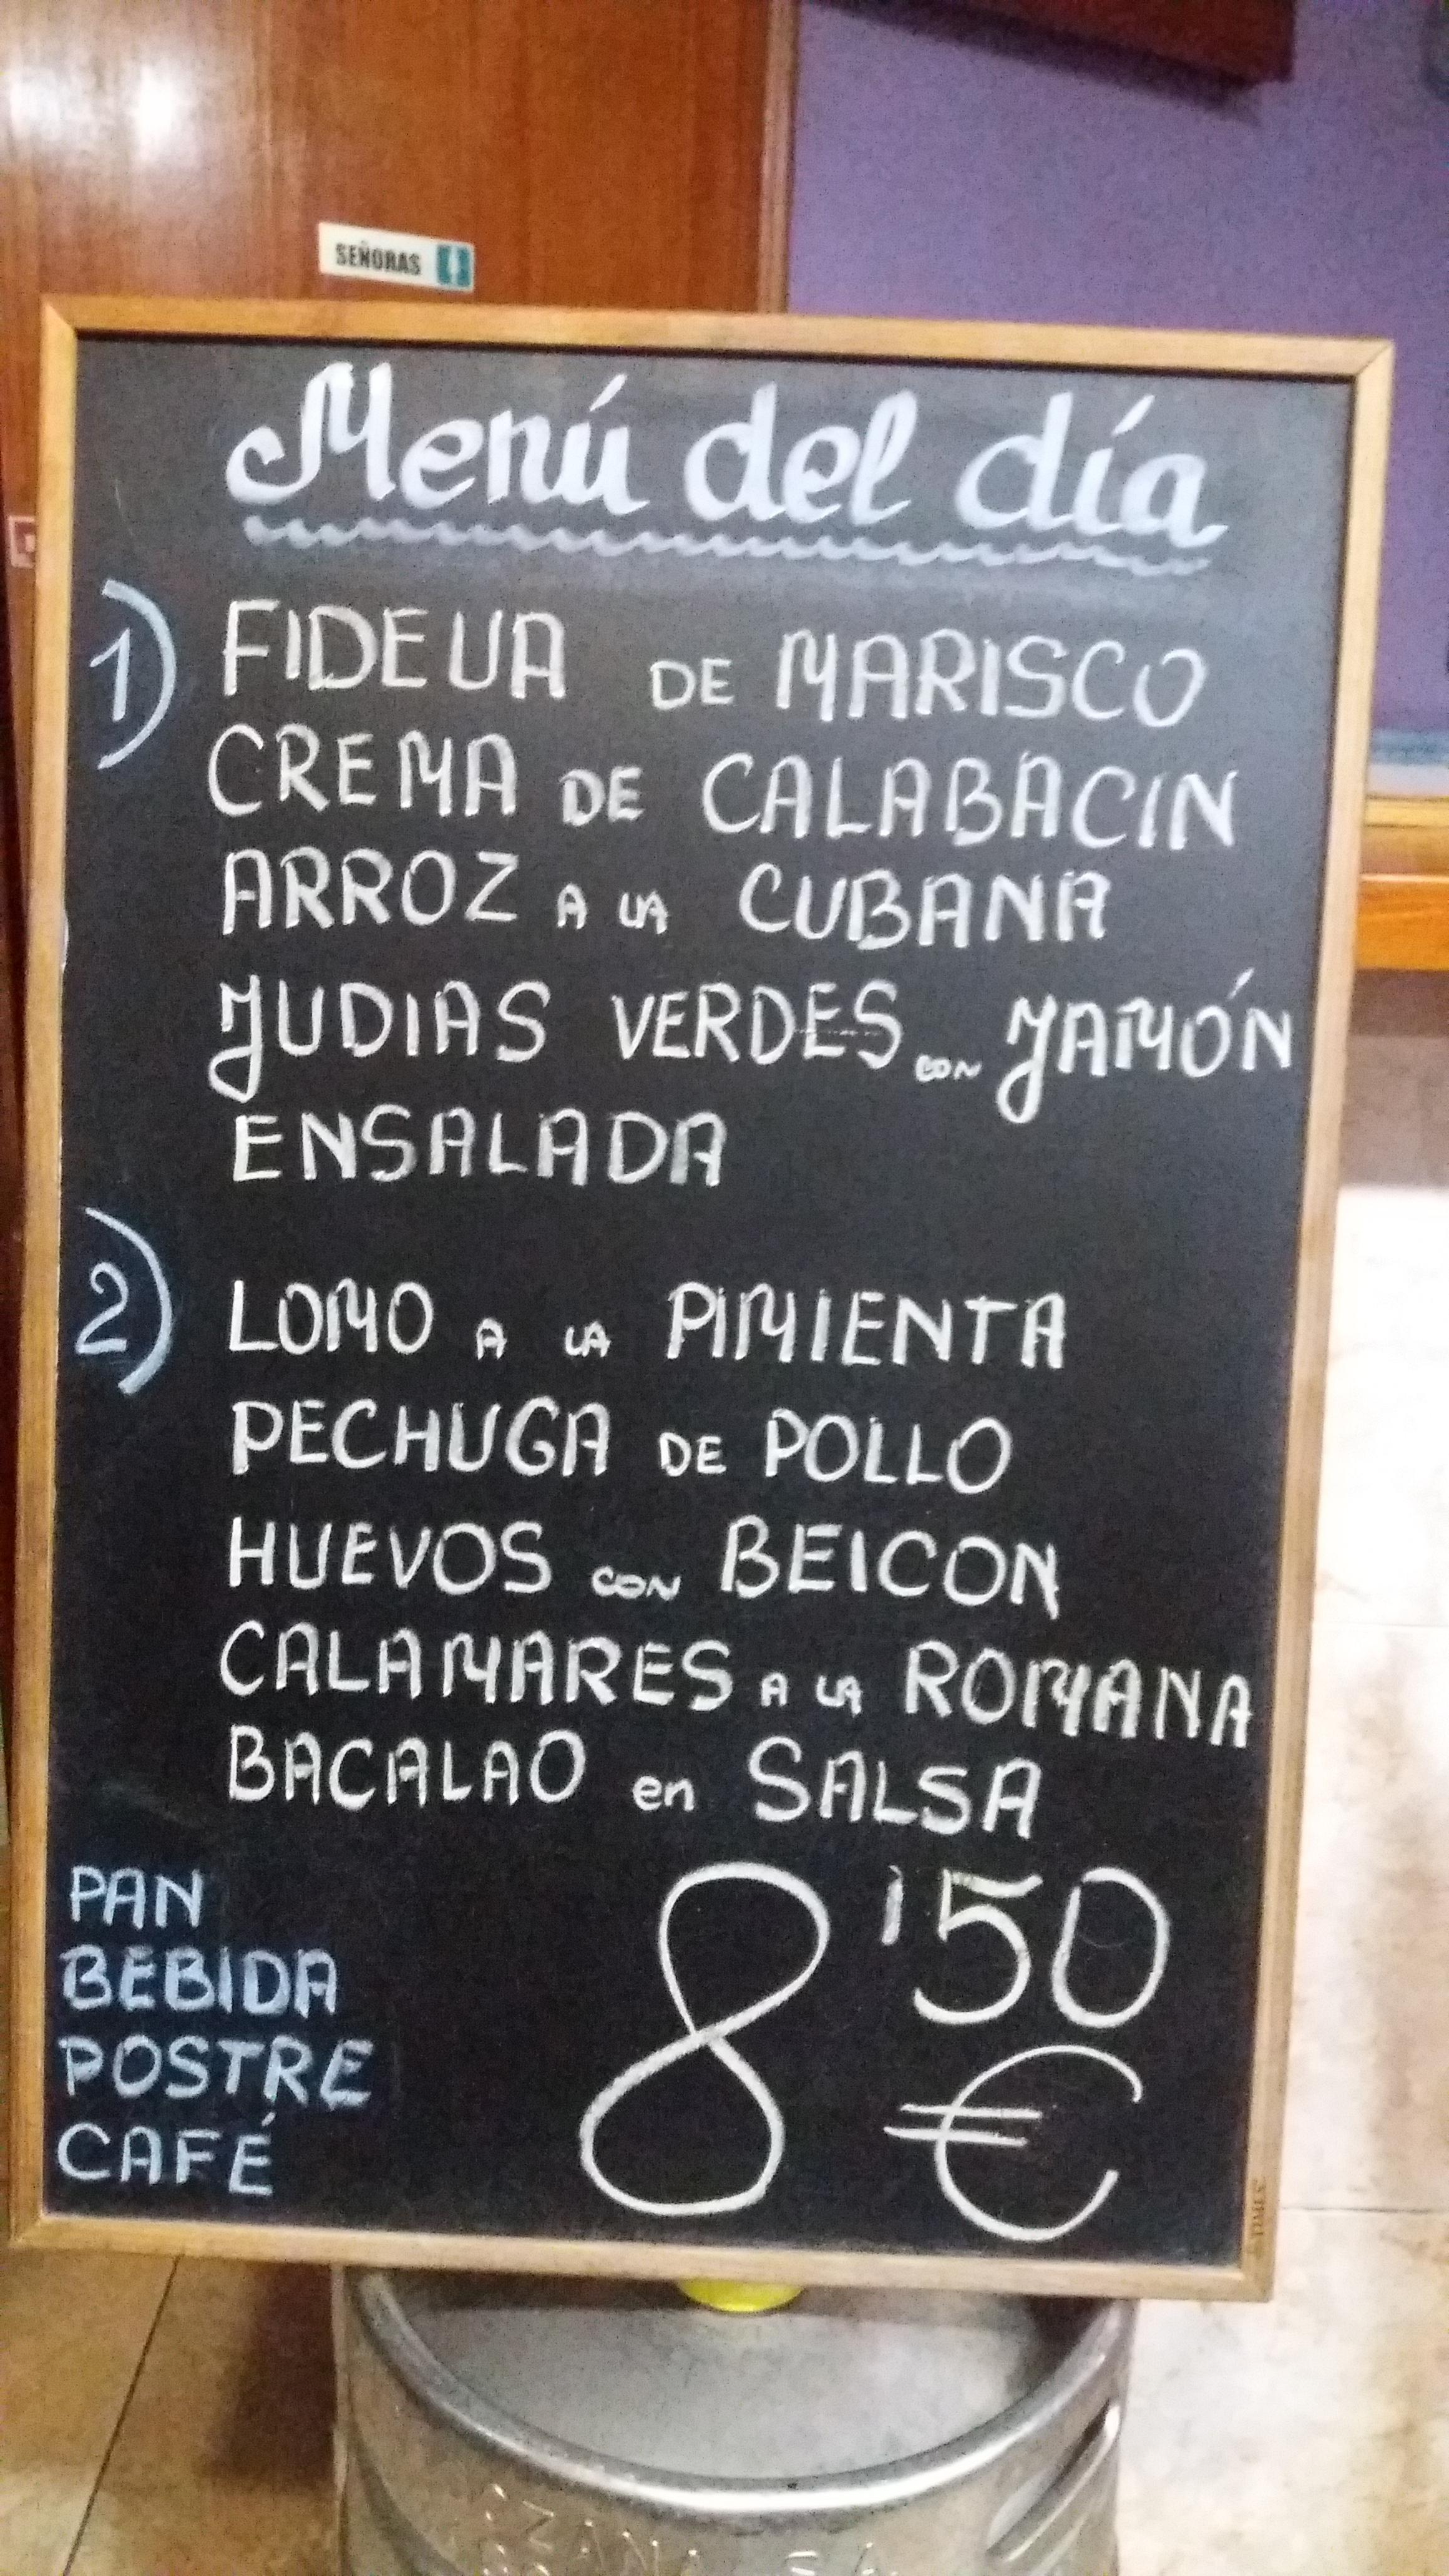 SEÑORAS
Menú del día
1) FIDEUA DE MARISCO
CREMA DE CALABACIN
ARROZ A LA CUBANA
JUDIAS VERDES CON JAMÓN
ENSALADA
2) LOMO A LA PIMIENTA
PECHUGA DE POLLO
HUEVOS CON BEICON
CALAMARES A LA ROMANA
BACALAO en SALSA
PAN
BEBIDA
POSTRE
CAFÉ
8'50
€